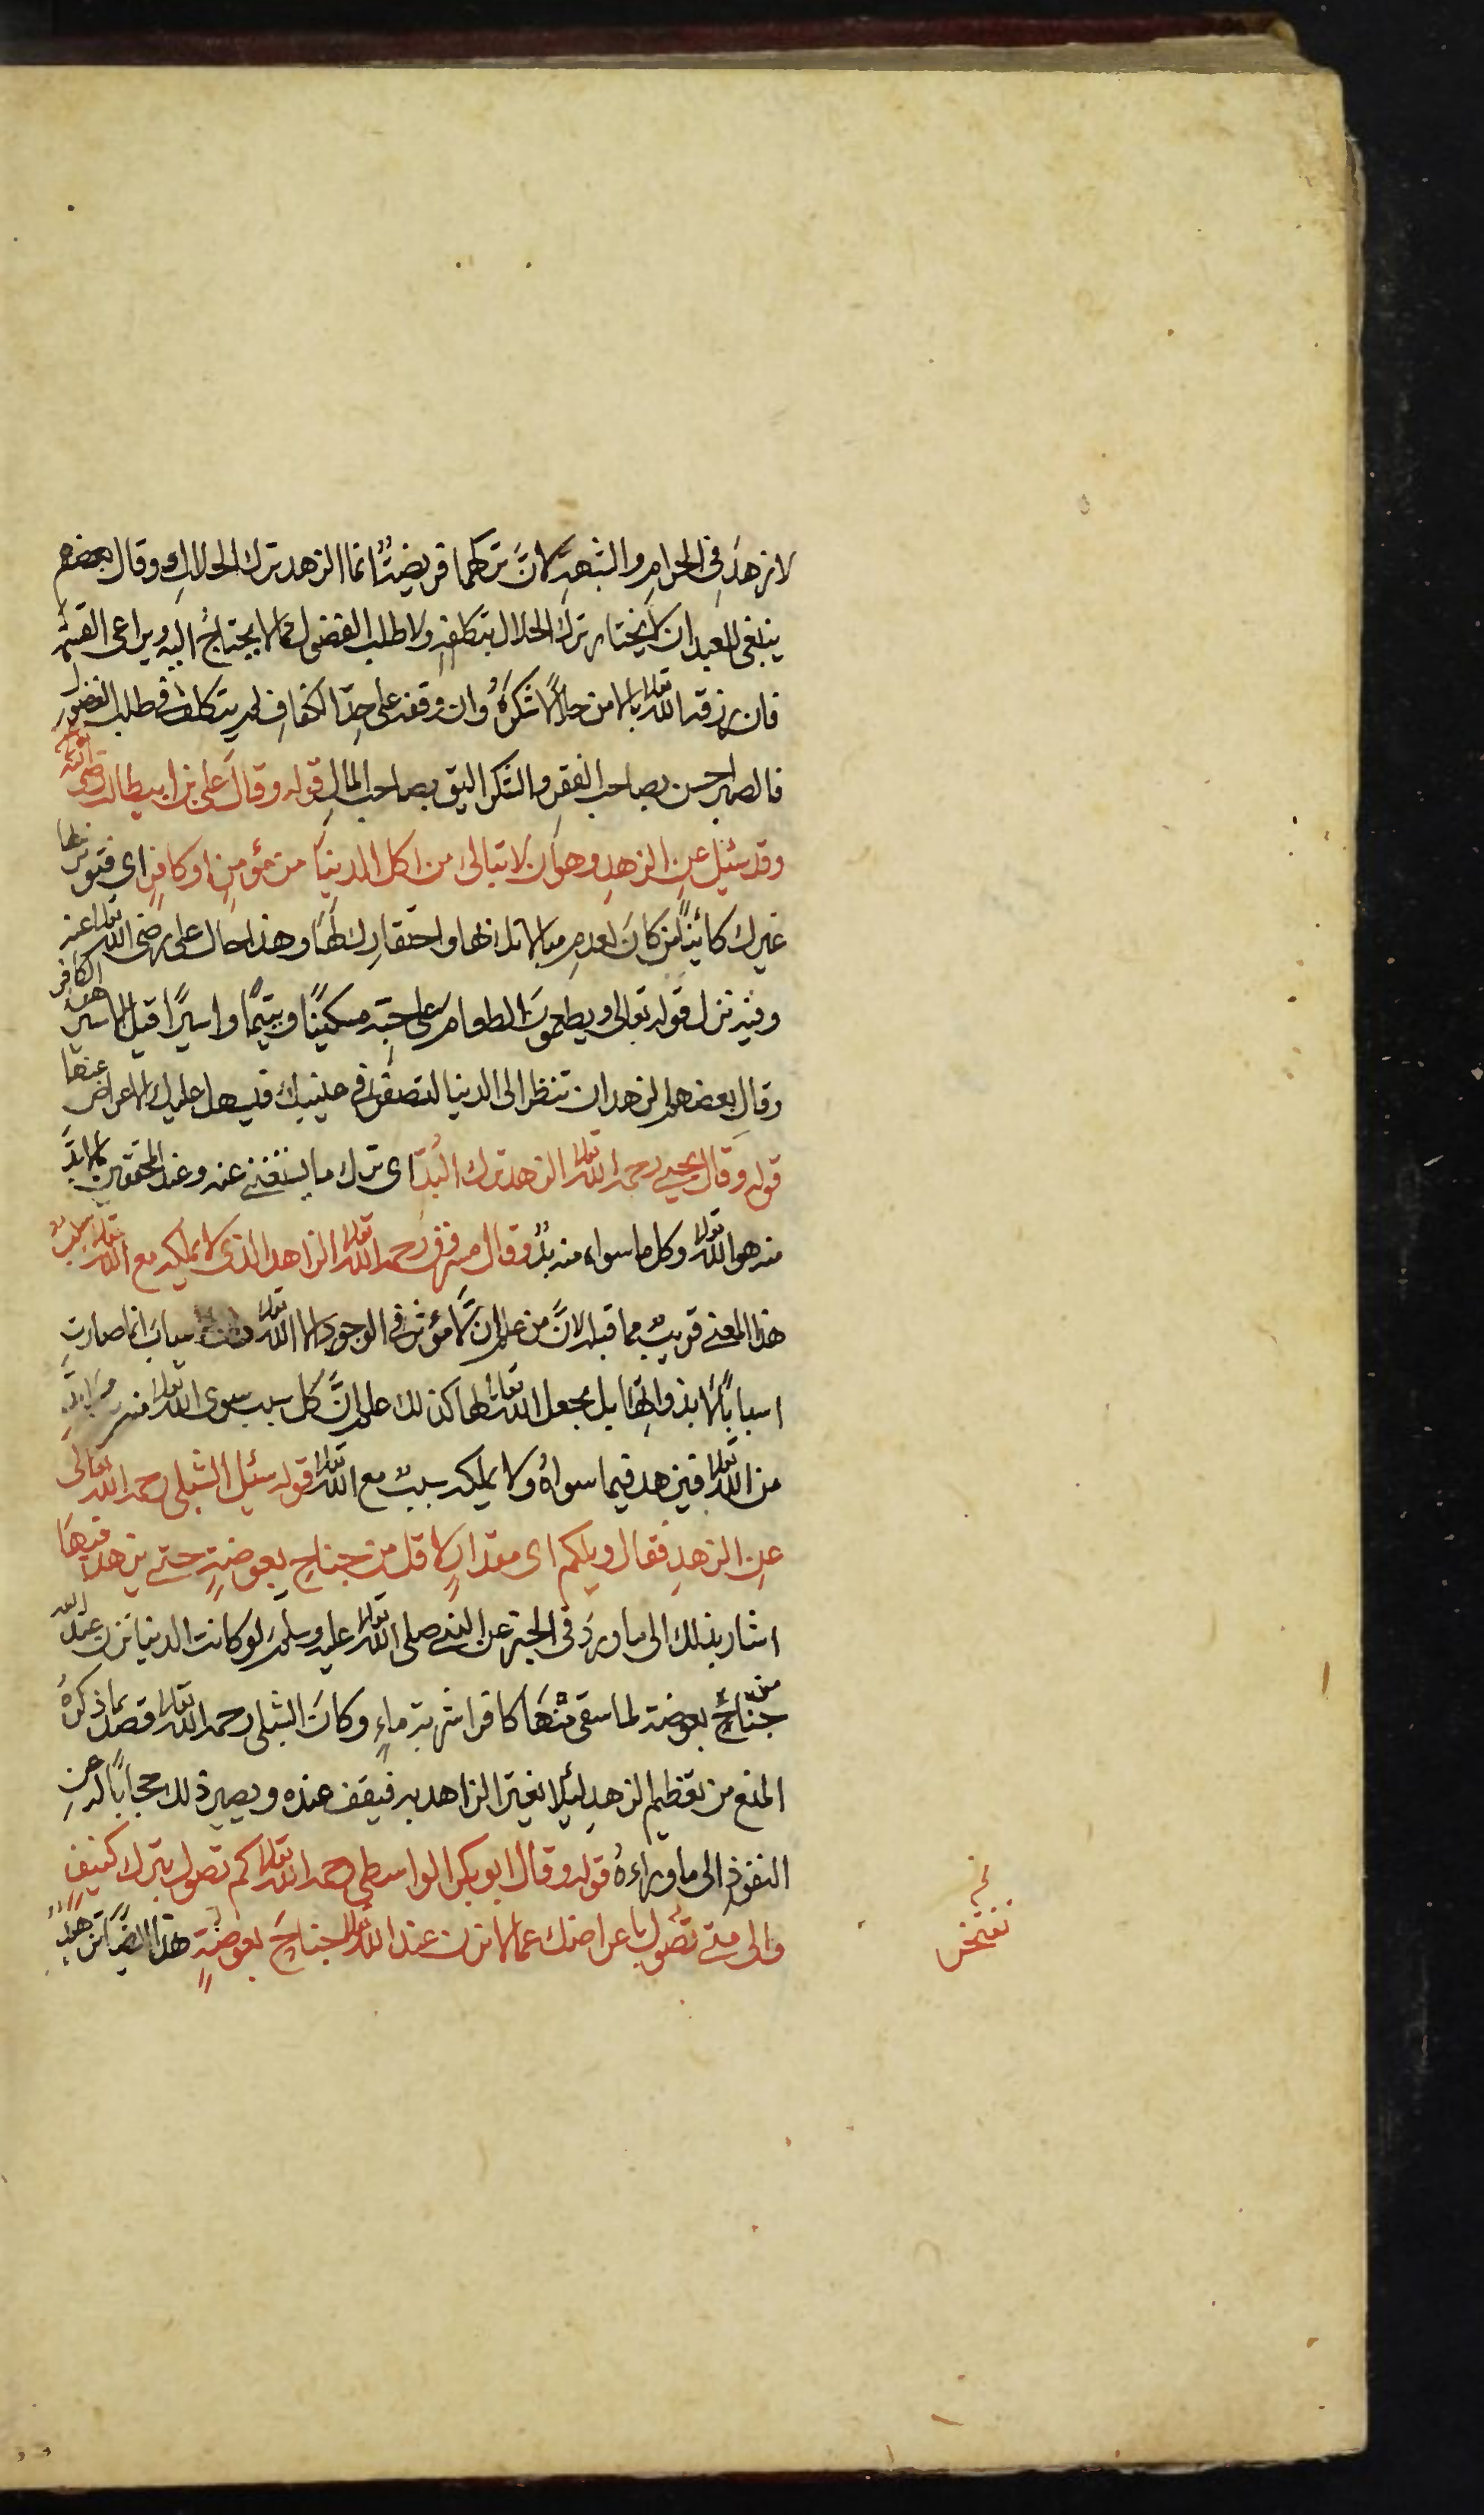 لا زهدَ في الحرامِ والشبهةِ لانَّ تركهما فريضةٌ انما الزهد ترك الحلالِ وقال بعضهم
ينبغي للعبد ان لا يختار ترك الحلال بتكلفهِ ولا طلب الفضول مما لا يحتاجُ اليه ويراعى القسمة
فان رزقه الله تعالى مالا من حلالٍ شكرَهُ وان وقفه على حدِّ الكفافِ لم يتكلف في طلب الفضول
فالصبر احسن بصاحب الفقرِ والشكر اليق بصاحب المالِ قوله وقال على بن ابيطالب رضي الله عنه
وقد سئيل عن الزهدِ وهو ان لا تبالى من اكل الدنيا من مؤمنٍ او كافرٍ اى فتوثر بها
غيرك كائنًا من كانَ لعدمِ مبالاتك بها واحتقارِك لها وهذا حال على رضي الله تعالى عنه
وفيه نزل قوله تعالى ويطعمونَ الطعام على حبّه مسكينًا ويتيمًا واسيرًا قيل الاسيرُ هو الكافر
وقال بعضهم الزهد ان تنظر الى الدنيا لتصغرَ في عينيك فيسهل عليك الاعراض عنها
قوله وقال يحيى رحمه الله تعالى الزهد ترك البُدّ اى ترك ما يستغنى عنه وعند المحققين لابدَّ
منه هو الله تعالى وكل ما سواه منه بدٌّ وقال مسروق رحمه الله تعالى الزاهد الذى لا يملكه مع الله تعالى سببٌ
هذا المعنى قريبٌ مما قبله لانَّ من علم ان لا مؤثر في الوجود الا الله تعالى انما صارت
اسبابًا لا بذواتِها بل بجعل الله تعالى لها كذلك علم انَّ كل سبب سوى الله تعالى منه
من الله تعالى فيزهد فيما سواهُ ولا يملكه سببٌ مع الله تعالى قوله سئيل الشبلى رحمه الله تعالى
عن الزهدِ فقال ويلكم اى مقدارٍ لاقل من جناحِ بعوضةٍ حتى يزهد فيها
اشار بذلك الى ما وردَ في الخبر عن النبي صلى الله تعالى عليه وسلم لو كانت الدنيا تزن عند الله
جناحَ بعوضة لما سقى منها كافرا شربة ماءٍ وكانَ الشبلى رحمه الله تعالى قصد بما ذكرهُ
المنع من تعظيم الزهدِ لئيلا يغترّ الزاهد به فيقف عنده ويصير ذلك حجابًا له عن
النفوذِ الى ما وراءهُ قوله وقال ابو بكر الواسطى رحمه الله تعالى كم تصول بترك كنيفٍ
والى متى تصُول باعراضك عما لا تزن عند الله تعالى جناحَ بعوضةٍ هذا ايضًا تزهيدٌ
تفتخر